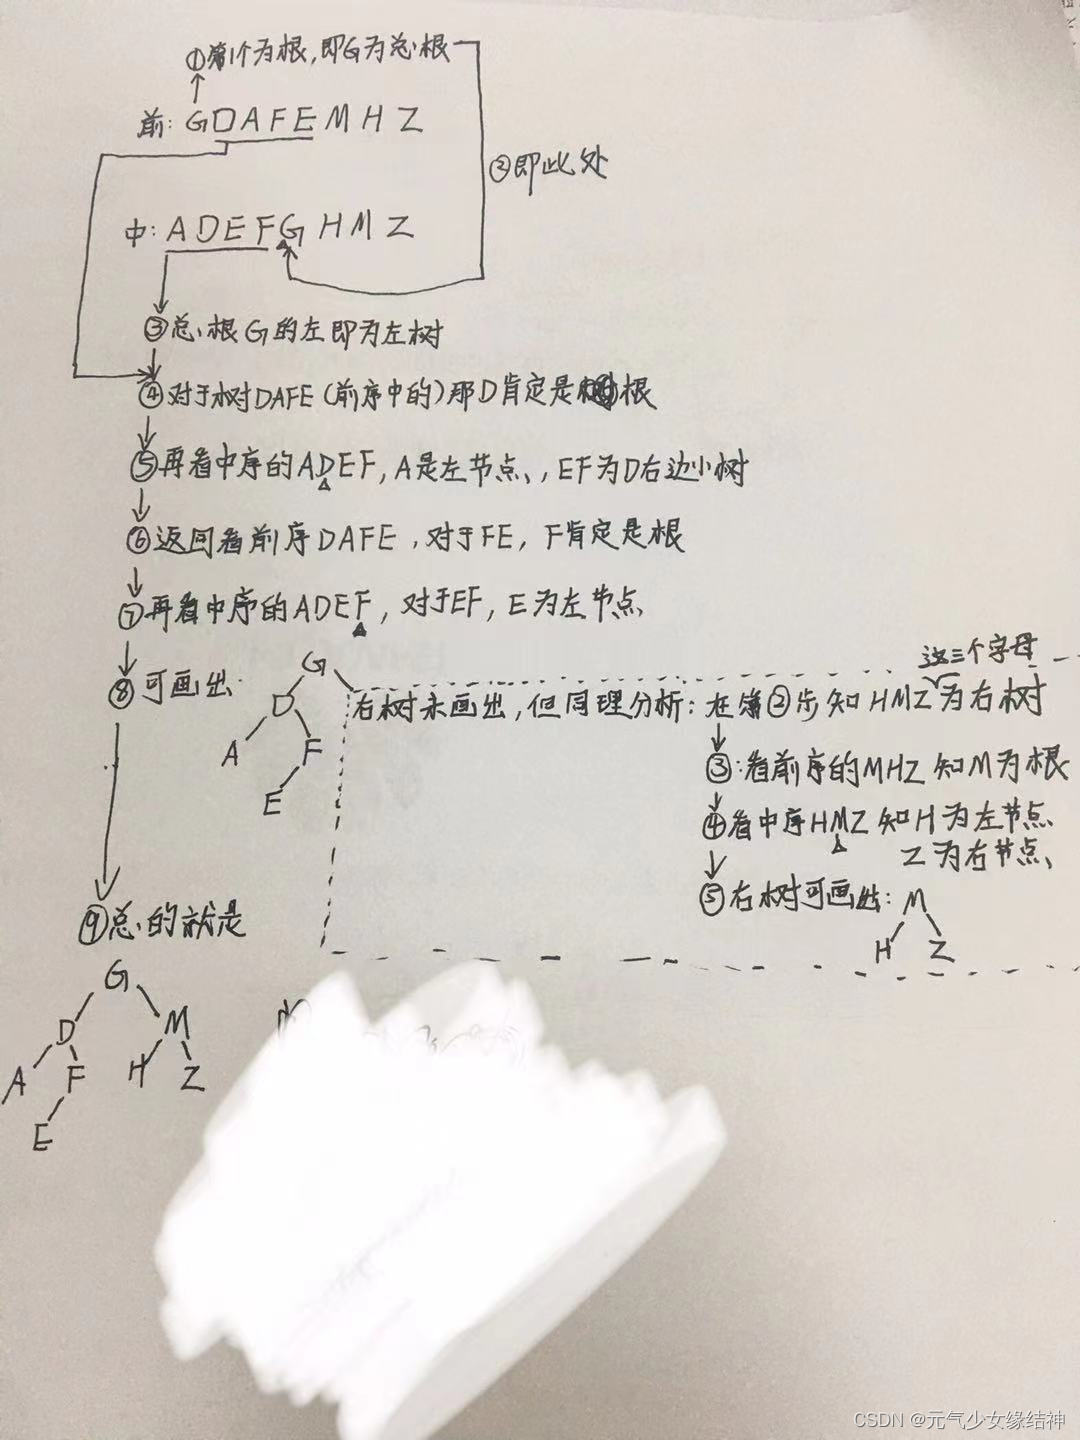 ①第1个为根,即G为总根
前: GDAFEMHZ
②即此处
中: ADEFGHMZ
③总根G的左即为左树
④对于树DAFE(前序中的)那D肯定是根
⑤再看中序的ADEF,A是左节点,EF为D右边小树
⑥返回看前序DAFE,对于FE,F肯定是根
⑦再看中序的ADEF,对于EF,E为左节点
⑧可画出:
G
D
A F
E
这三个字母
右树未画出,但同理分析:在第②步知HMZ为右树
③:看前序的MHZ知M为根
④看中序HMZ知H为左节点
Z为右节点
⑤右树可画出:
M
H Z
⑨总的就是
G
D M
A F H Z
E
CSDN @元气少女缘结神